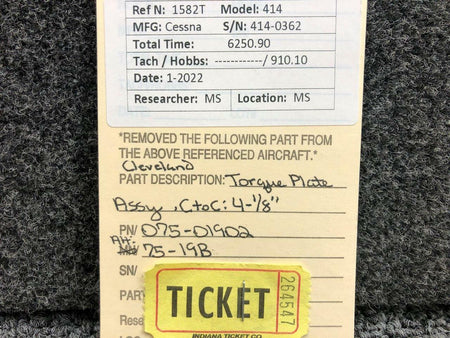 Ref N: 1582T Model: 414
MFG: Cessna S/N: 414-0362
Total Time: 6250.90
Tach / Hobbs: ------------/ 910.10
Date: 1-2022
Researcher: MS Location: MS
*REMOVED THE FOLLOWING PART FROM
THE ABOVE REFERENCED AIRCRAFT.*
Cleveland
PART DESCRIPTION: Torque Plate
Assy, CtoC: 4-1/8"
PN/ 075-01902
Alt:
75-19B
SN/
PAR
Rese
TICKET
264547
INDIANA TICKET CO.